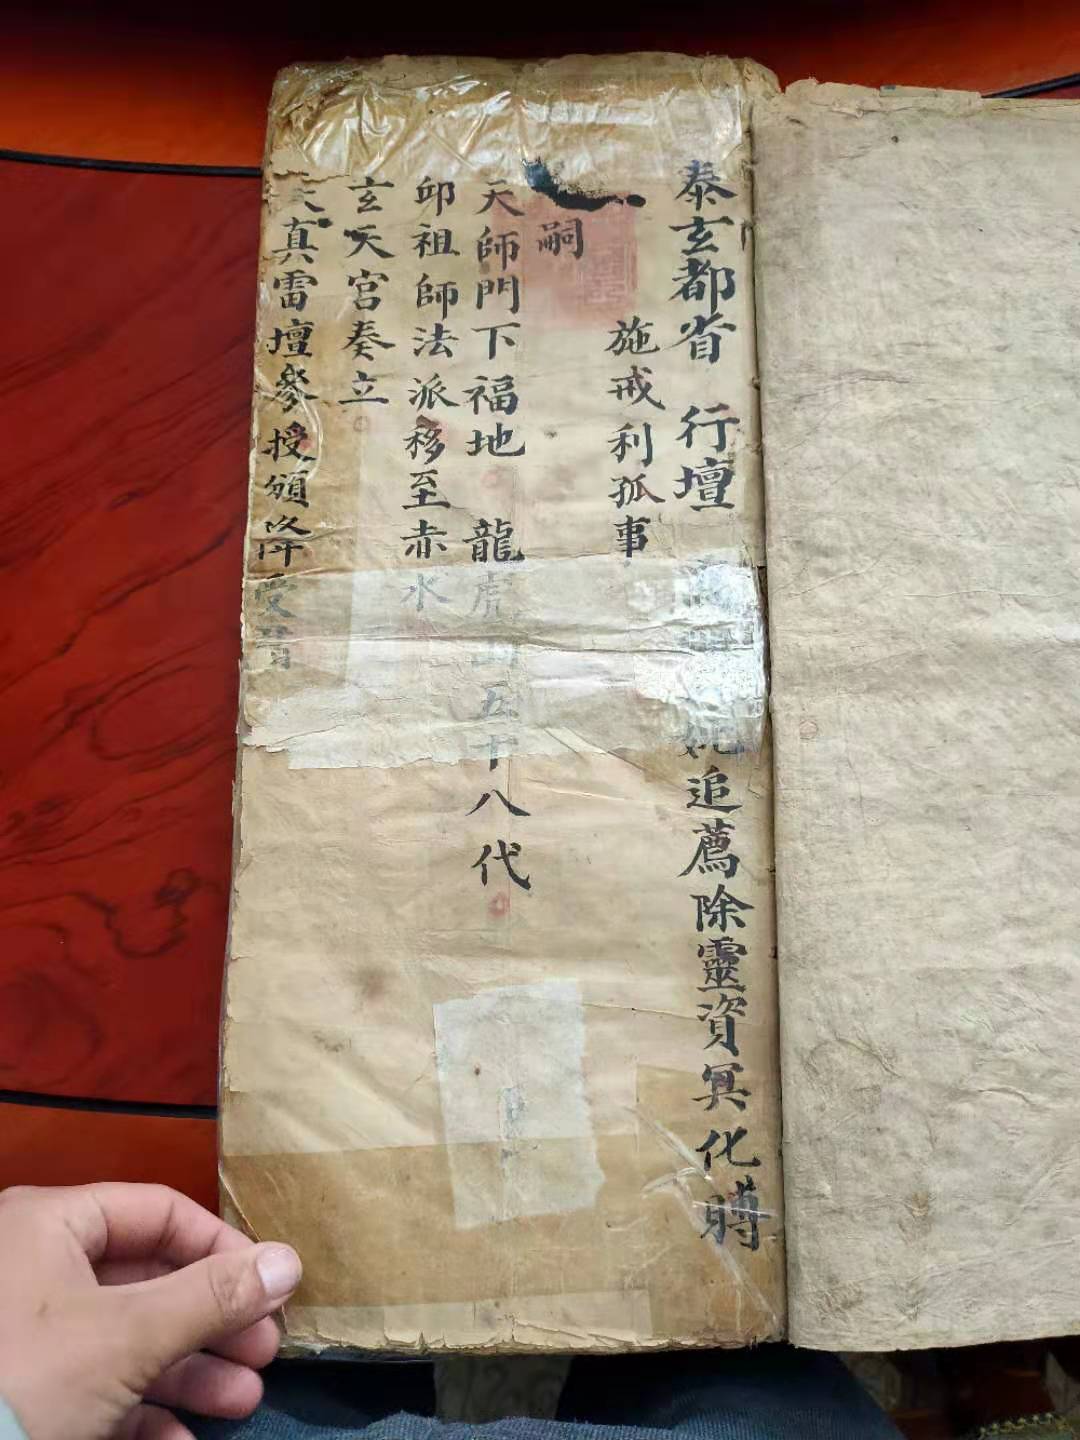 泰玄都省 行壇 追薦除靈資冥化賻
施戒利孤事
嗣
天師門下福地 龍虎山五十八代
邱祖師法派移至赤水
玄天宮奏立
真雷壇參授頒降受